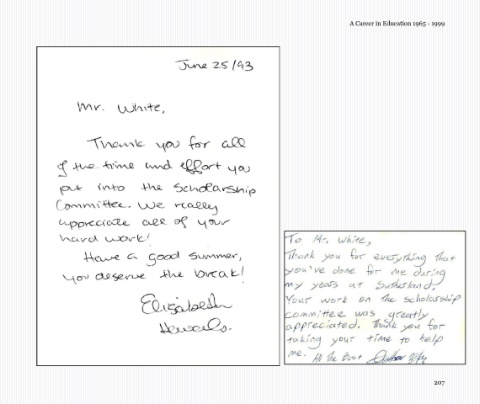 A Career in Education 1965 - 1999
June 25/93
Mr. White,
Thank you for all
of the time and effort you
put into the Scholarship
Committee. We really
appreciate all of your
hard work!
Have a good summer,
you deserve the break!
Elizabeth
To Mr. White,
Thank you for everything that
you've done for me during
my years at Sutherland.
Your work on the scholarship
committee was greatly
appreciated. Thank you for
taking your time to help
me. All the Best
207